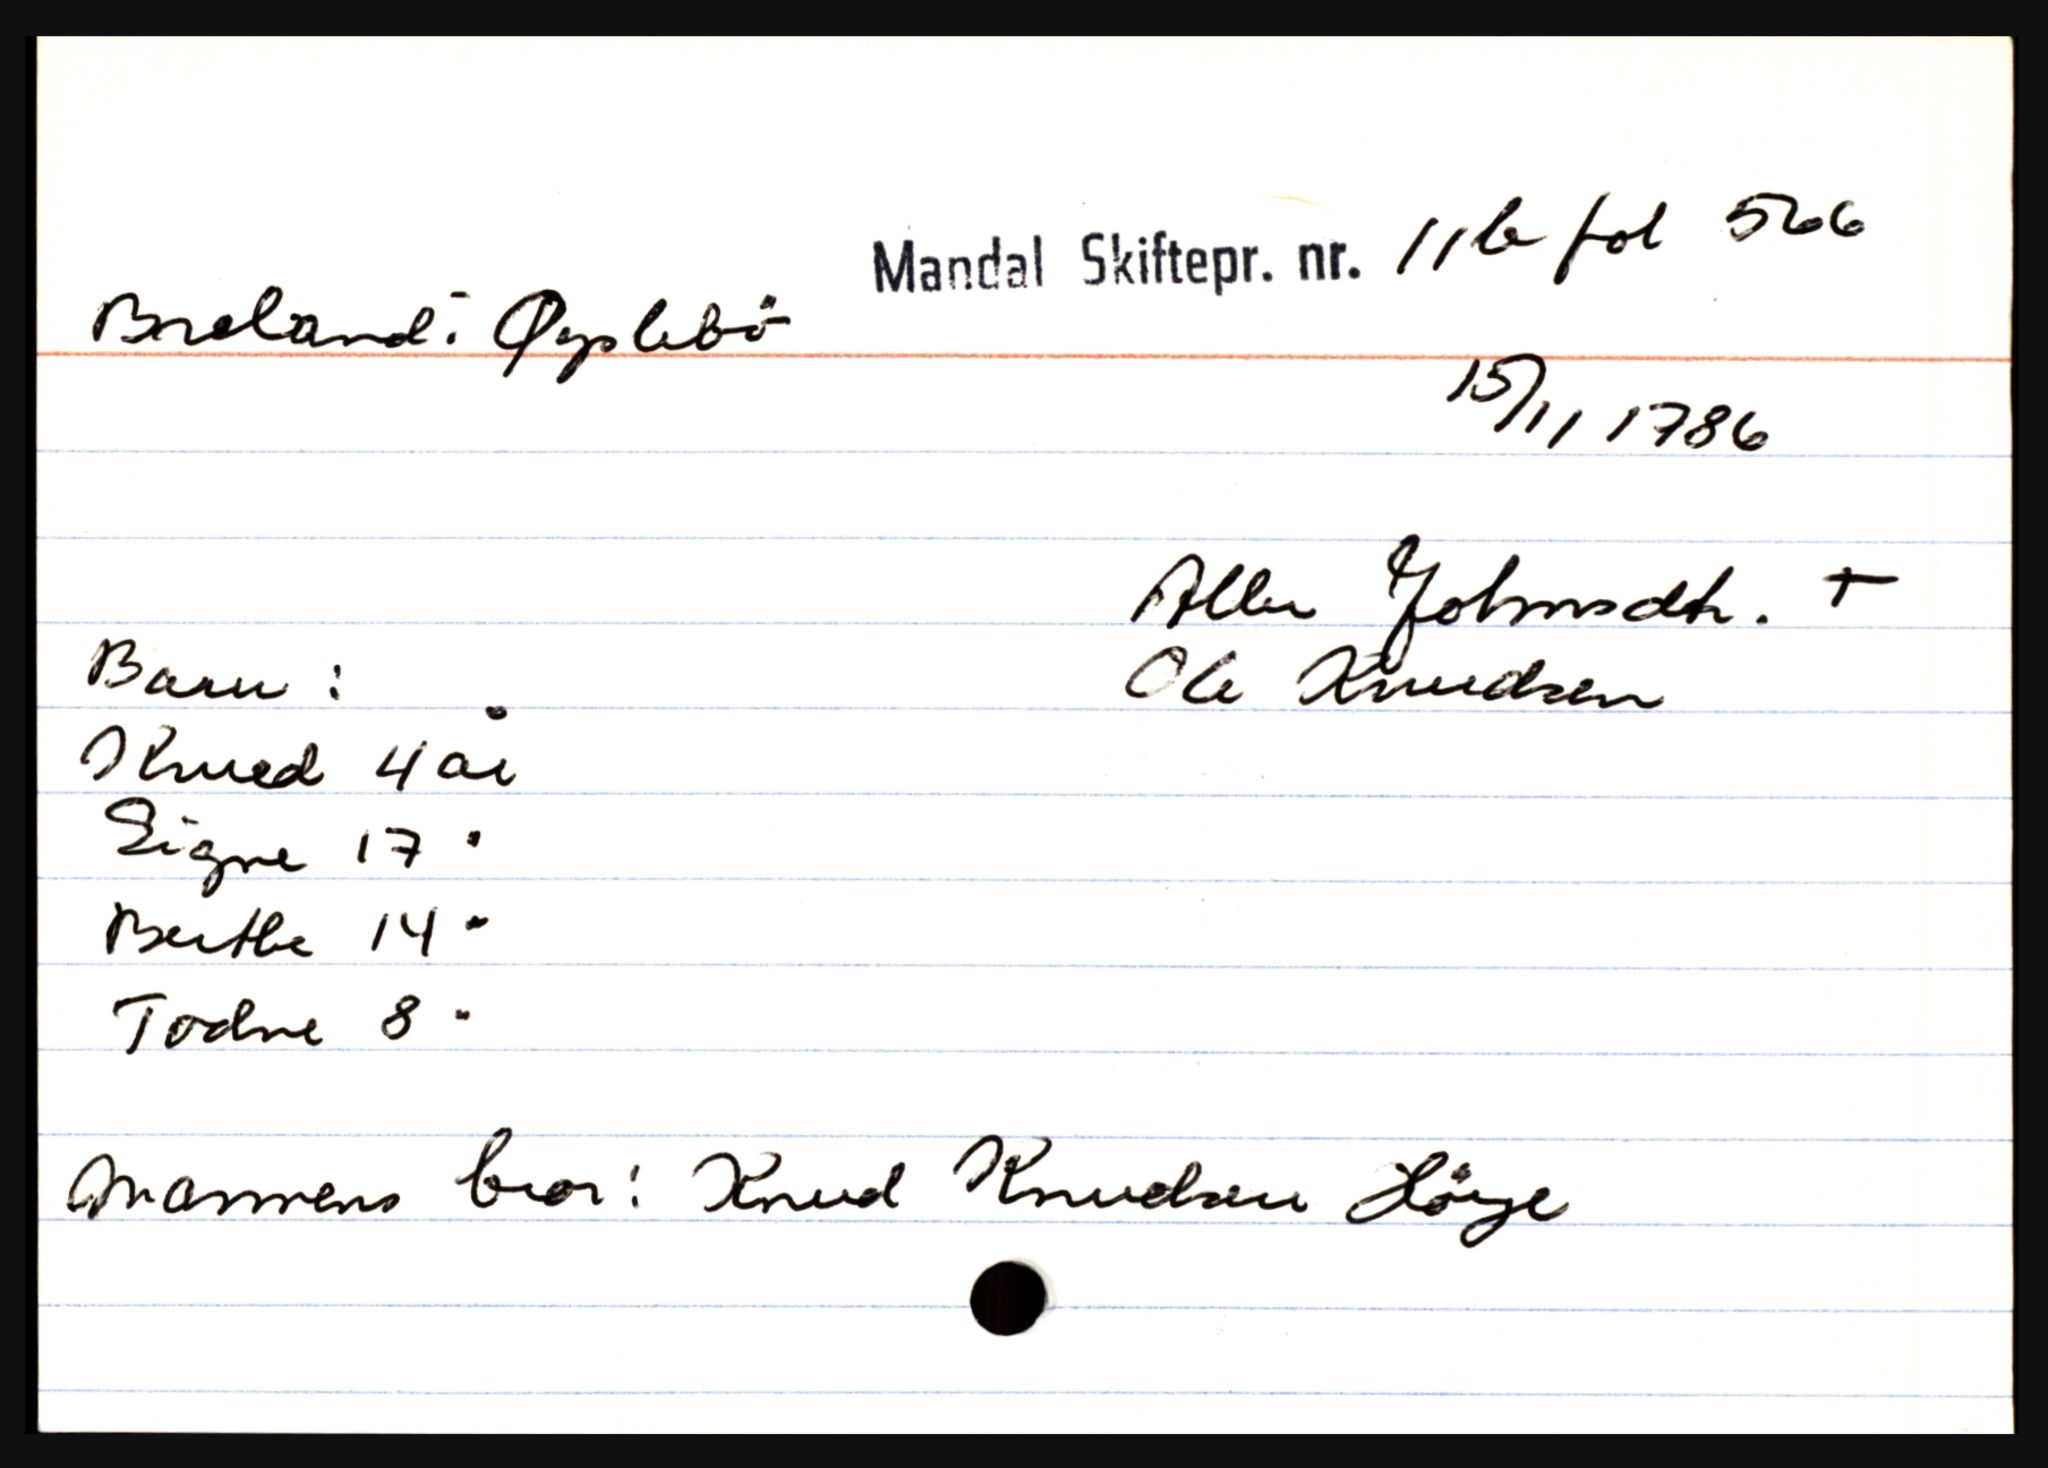 Mandal Skiftepr. nr. 11b fol 566
Breland i Øyslebö
15/11 1786
Aller Johnsdtr. +
Ole Knudsen
Barn :
Knud 4 år
Signe 17 "
Berthe 14 "
Todne 8 "
Mannens bror: Knud Knudsen Höye